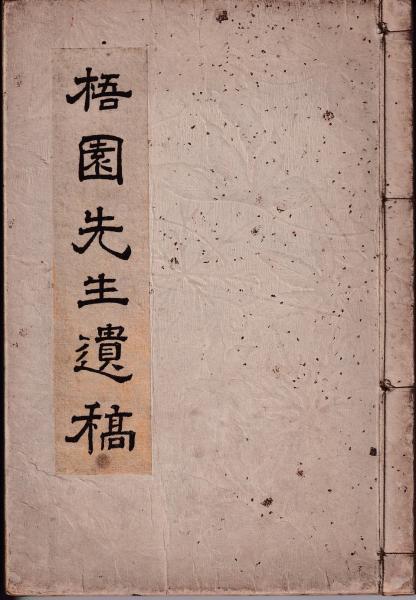 梧園先生遺稿